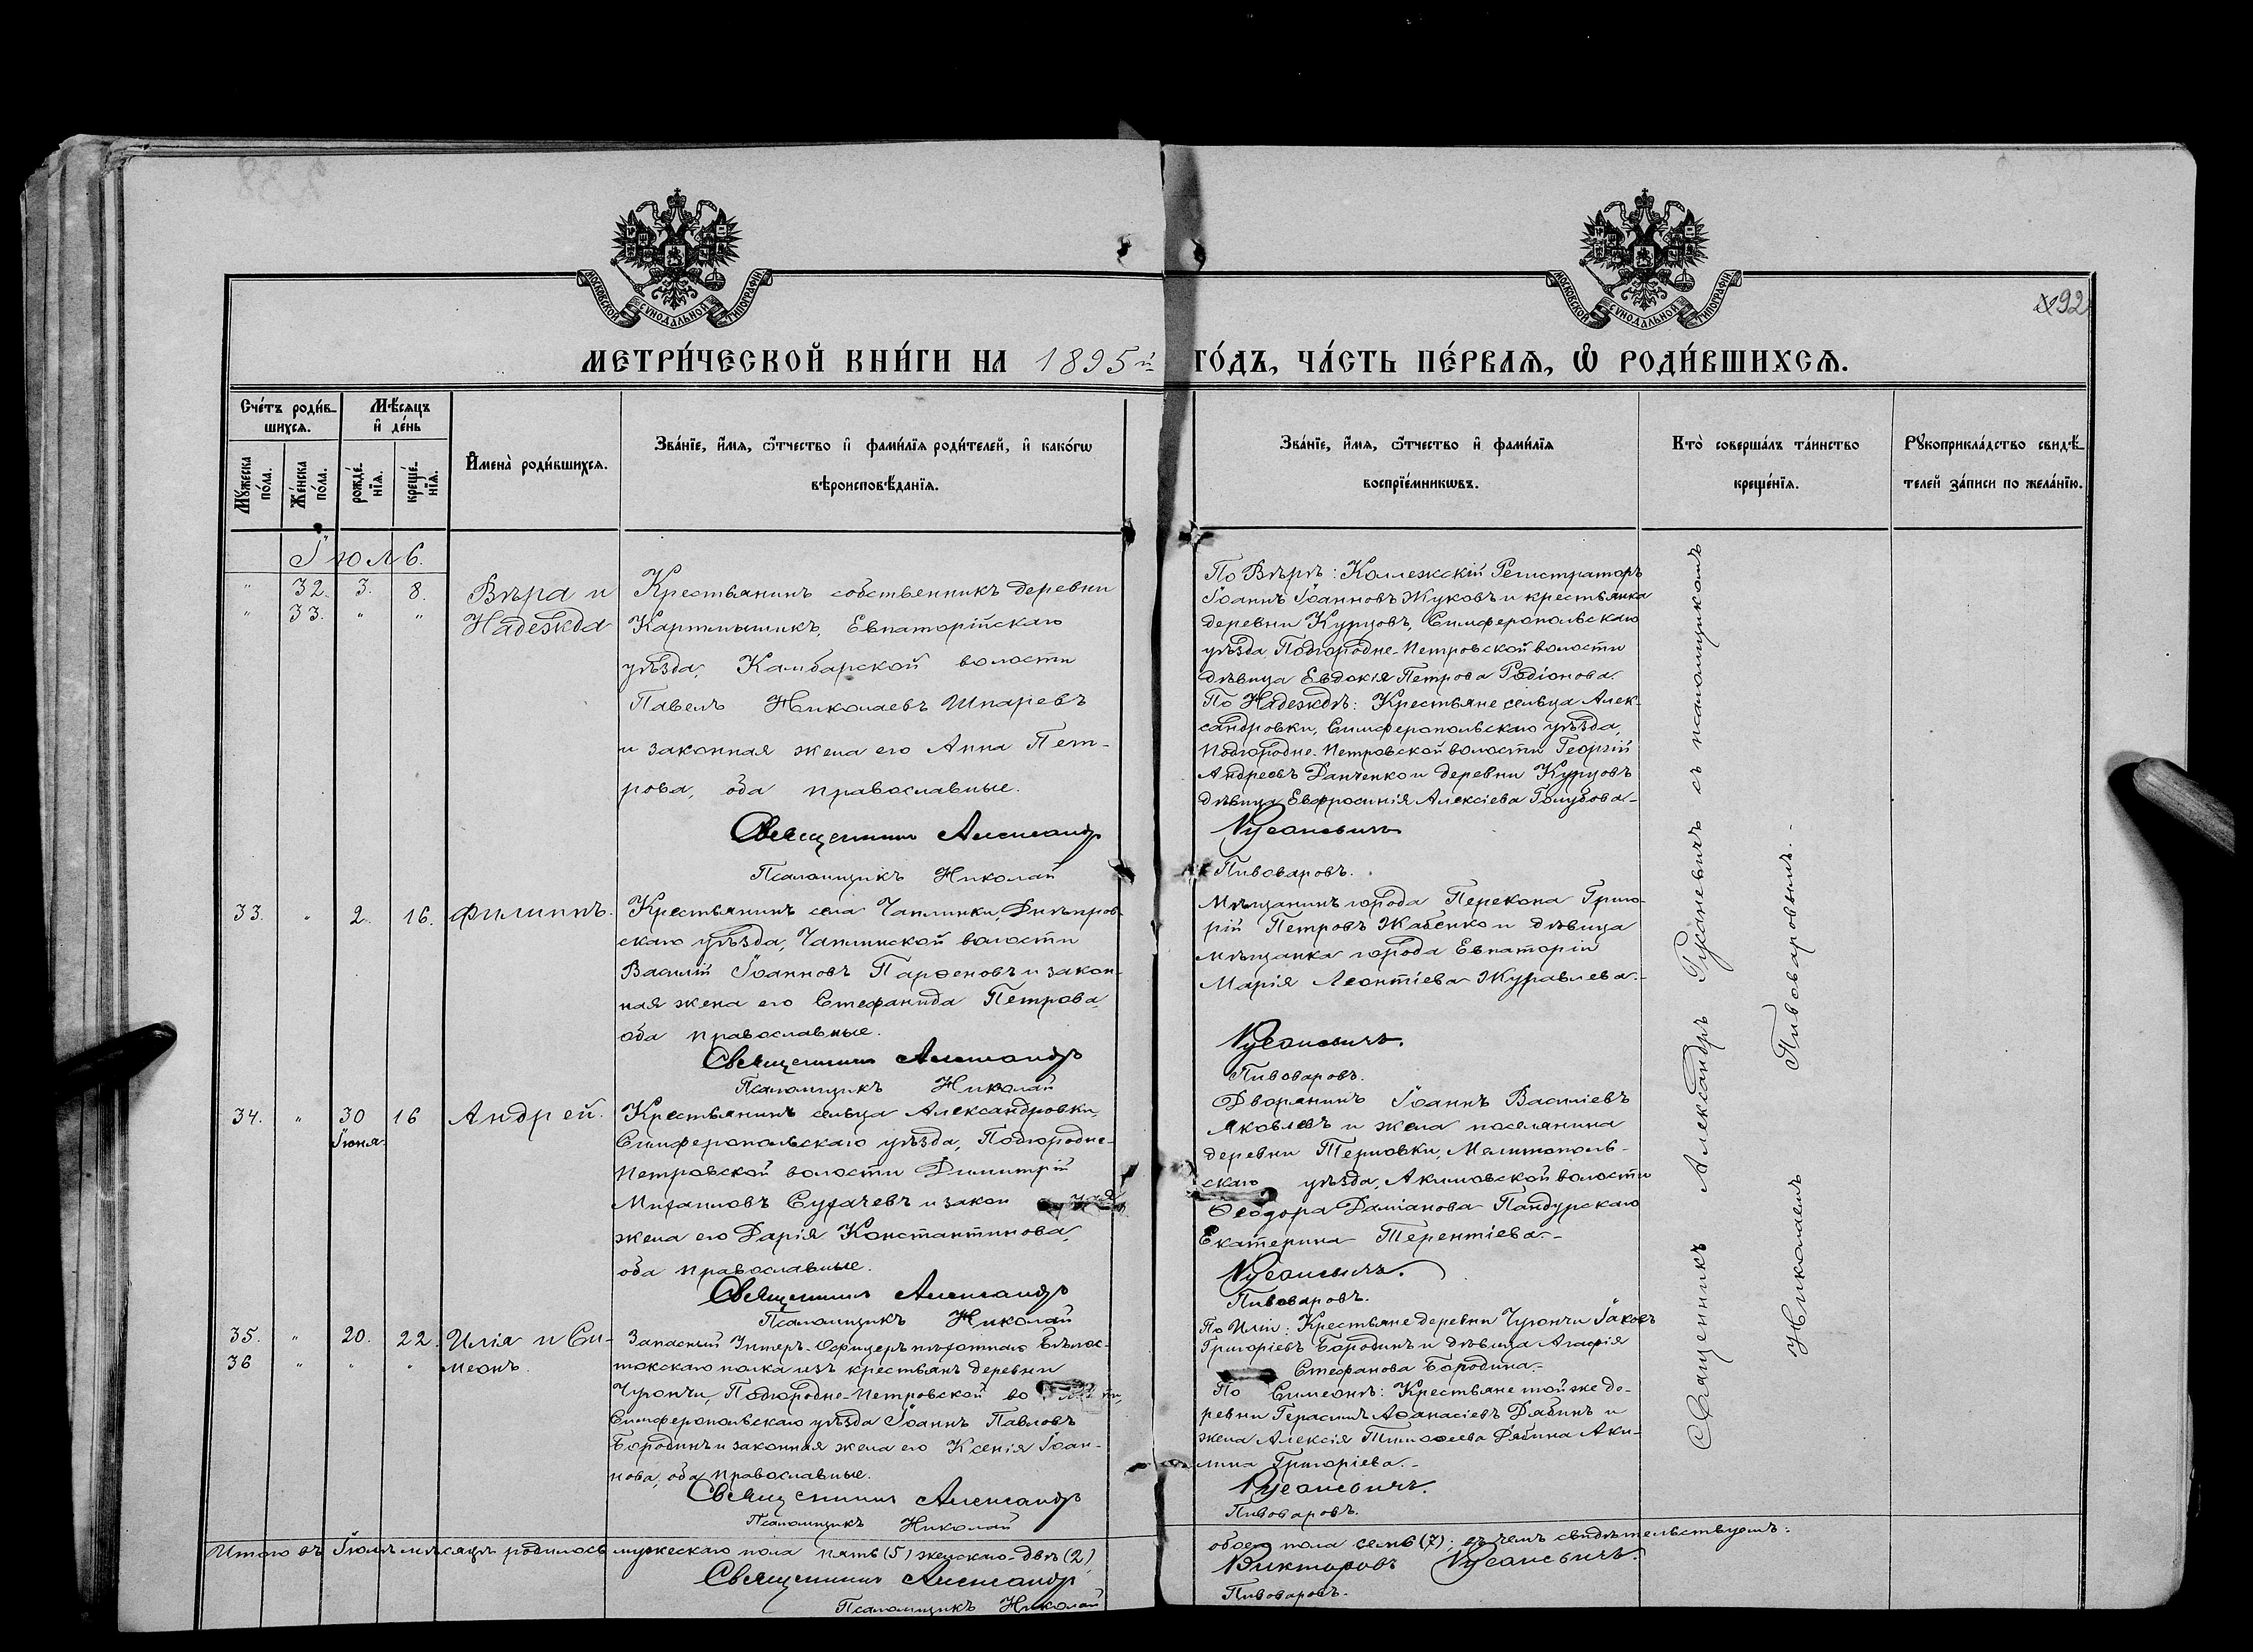 МОСКОВСКОЙ СѴНОДАЛЬНОЙ ТИПОГРАФІИ
МОСКОВСКОЙ СѴНОДАЛЬНОЙ ТИПОГРАФІИ
92
МЕТРИ́ЧЕСКОЙ КНИ́ГИ НА 1895 й ГО́ДЪ, ЧА́СТЬ ПЕ́РВАЯ, Ѡ РОДИ́ВШИХСѦ.
Сче́тъ роди́в-
шихсѧ.
Мѣ́сѧцъ
и҆ де́нь
Мꙋ́жеска
по́ла.
Же́нска
по́ла.
рожде́-
нїѧ.
креще́-
нїѧ.
И҆мена̀ роди́вшихсѧ.
Зва́нїе, и҆́мѧ, ѻ҆́тчество и҆ фами́лїѧ роди́телей, и҆ како́гѡ
вѣроисповѣ́данїѧ.
Зва́нїе, и҆́мѧ, ѻ҆́тчество и҆ фами́лїѧ
воспрїе́мникѡвъ.
Кто̀ соверша́лъ та́инство
креще́нїѧ.
Рꙋкоприкла́дство свидѣ́-
телей за́писи по жела́нїю.
Іюль.
" 32. 3. 8. Вѣра и
" 33. " " Надежда
Крестьянинъ собственникъ деревни
Картмышикъ, Евпаторійскаго
уѣзда, Камбарской волости
Павелъ Николаевъ Шпаревъ
и законная жена его Анна Пет-
рова, оба православные.
Священникъ Александр
Псаломщикъ Николай
По Вѣрѣ: Коллежскій Регистраторъ
Іоаннъ Іоанновъ Жуковъ и крестьянка
деревни Курцовъ, Симферопольскаго
уѣзда, Подгородне-Петровской волости
дѣвица Евдокія Петрова Родіонова.
По Надеждѣ: Крестьяне сельца Алек-
сандровки, Симферопольскаго уѣзда,
Подгородне-Петровской волости Георгій
Андреевъ Данченко и деревни Курцовъ
дѣвица Евфросинія Алексіева Голубова-
Русаневичъ
Пивоваровъ.
33. " 2. 16. Филиппъ.
Крестьянинъ села Чаплинки, Днѣпров-
скаго уѣзда, Чаплинской волости
Василій Іоанновъ Парѳеновъ и закон-
ная жена его Стефанида Петрова,
оба православные.
Священникъ Александр
Псаломщикъ Николай
Мѣщанинъ города Перекопа Григо-
рій Петровъ Жабенко и дѣвица
мѣщанка города Евпаторіи
Марія Леонтіева Журавлева.-
Русаневичъ.
Пивоваровъ.
34. " 30 16 Андрей.
Іюня.
Крестьянинъ сельца Александровки,
Симферопольскаго уѣзда, Подгородне-
Петровской волости Димитрій
Михаиловъ Сухачевъ и закон ная
жена его Дарія Константинова,
оба православные.
Священникъ Александр
Псаломщикъ Николай
Дворянинъ Іоаннъ Василіевъ
Яковлевъ и жена поселянина
деревни Терновки, Мелитополь-
скаго уѣзда, Акимовской волости
Ѳеодора Даміанова Пандурскаго
Екатерина Терентіева.-
Русаневичъ.
Пивоваровъ.
35. " 20. 22. Илія и Си-
36 " " " меонъ.
Запасный Унтеръ-Офицеръ пѣхотнаго Бѣлос-
токскаго полка изъ крестьянъ деревни
Чурончи, Подгородне-Петровской во
Симферопольскаго уѣзда Іоаннъ Павловъ
Бородинъ и законная жена его Ксенія Іоан-
нова, оба православные.
Священникъ Александр
Псаломщикъ Николай
По Иліи: Крестьяне деревни Чурончи Іаковъ
Григоріевъ Бородинъ и дѣвица Агафія
Стефанова Бородина.-
По Симеонѣ: Крестьяне той же де-
ревни Герасимъ Аѳанасіевъ Дябинъ и
жена Алексія Тимоѳеева Дябина Аки-
лина Григоріева.-
Русаневичъ.
Пивоваровъ.
Священникъ Александръ Русаневичъ съ псаломщикомъ
Николаемъ Пивоваровымъ.-
Итого въ Іюлѣ мѣсяцѣ родилось мужескаго пола пять (5) женскаго-двѣ (2)
обоего пола семь (7); въ чемъ свидѣтельствуемъ:
Священникъ Александр Викторовъ Русаневичъ.
Псаломщикъ Николай Пивоваровъ.